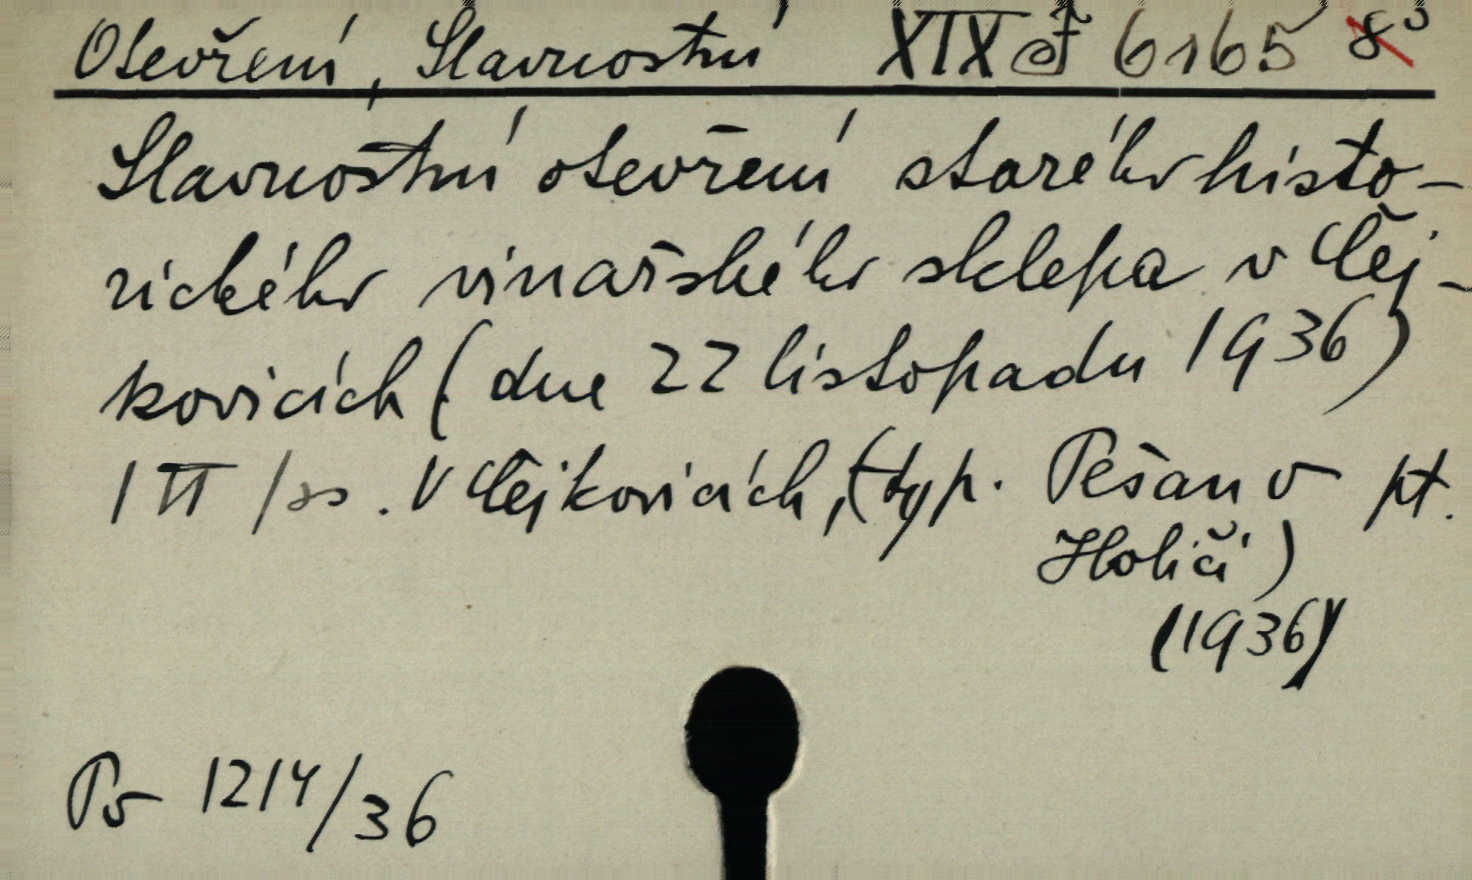 Otevření, Slavnostní XIX J 6165 8°
Slavnostní otevření starého histo-
rického vinařského sklepa v Čej-
kovicích (dne 22 listopadu 1936)
1 Tf /ss. V Čejkovicích, (typ. Pešan v pt.
Holiči)
(1936)
Po 1214/36